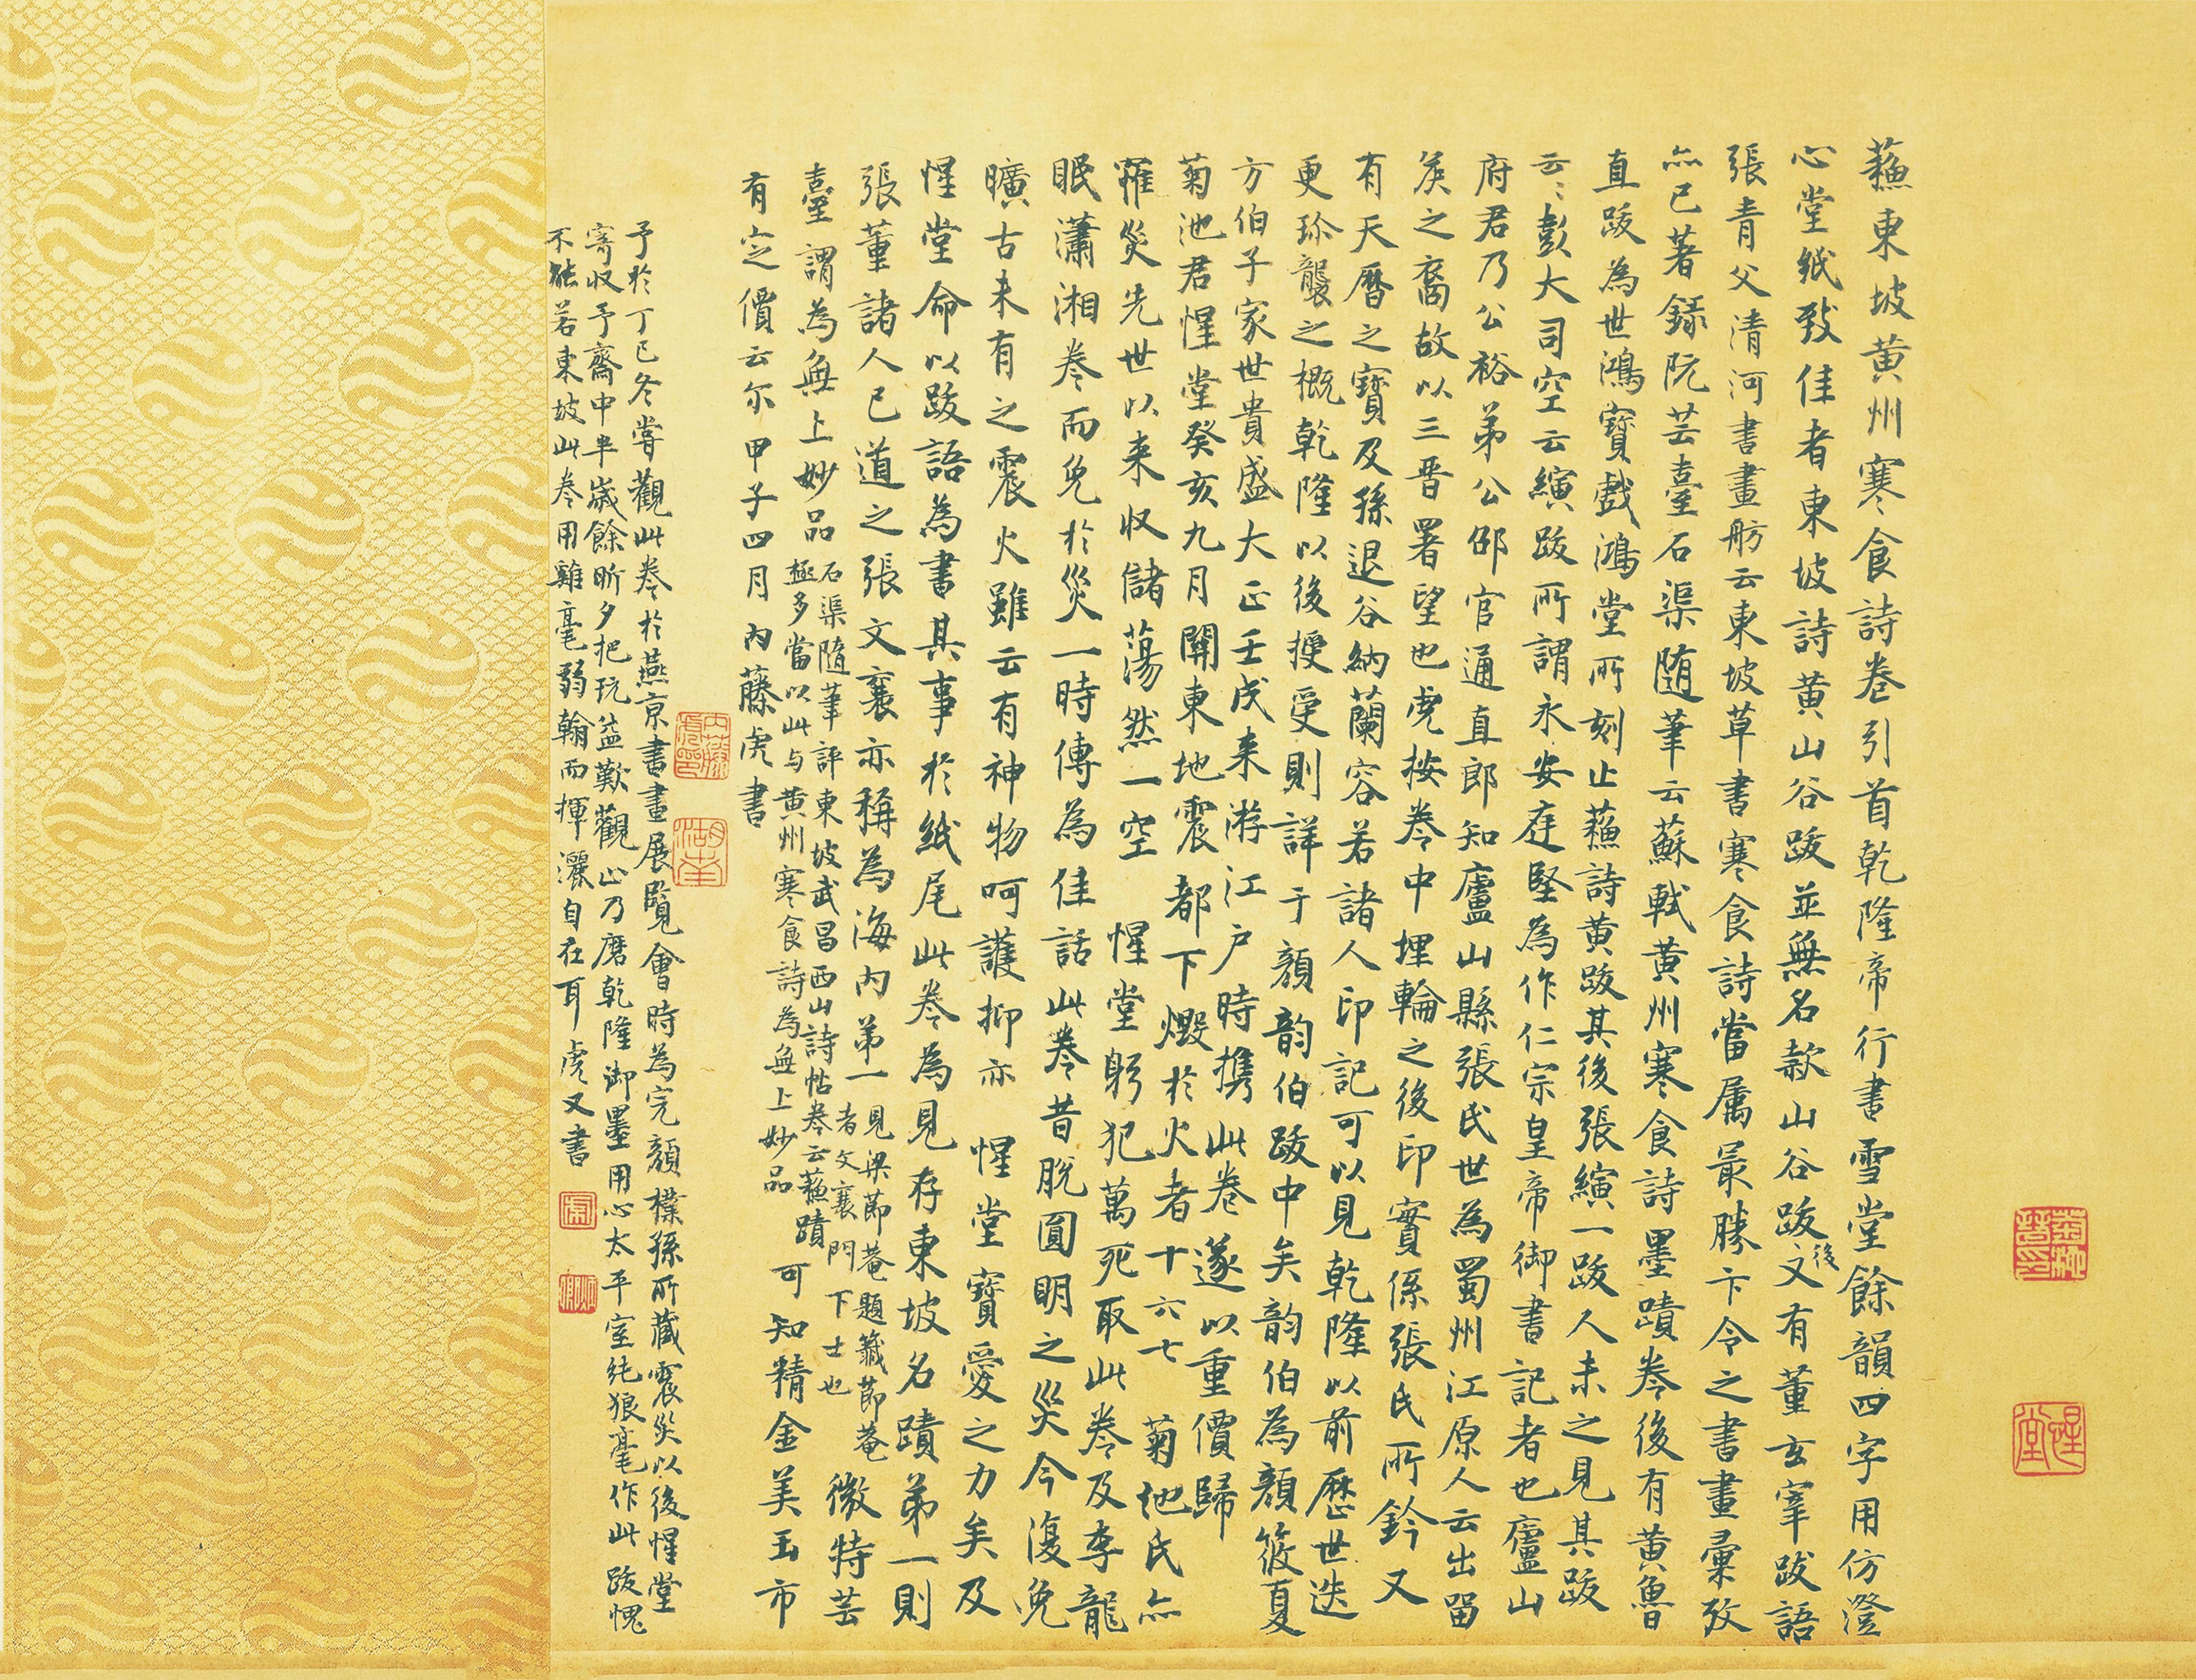 蘓東坡黃州寒食詩卷引首乾隆帝行書雪堂餘韻四字用仿澄
心堂紙致佳者東坡詩黃山谷跋並無名款山谷跋後又有董玄宰跋語
張青父清河書畫舫云東坡草書寒食詩當属最勝卞令之書畫彙攷
亦已著錄阮芸臺石渠随筆云蘇軾黃州寒食詩墨蹟卷後有黃魯
直跋為世鴻寶戲鴻堂所刻止蘓詩黃跋其後張縯一跋人未之見其跋
云〻彭大司空云縯跋所謂永安庭堅為作仁宗皇帝御書記者也廬山
府君乃公裕弟公邵官通直郎知廬山縣張氏世為蜀州江原人云出留
矦之裔故以三晋署望也虎按卷中埋輪之後印實係張氏所鈐又
有天曆之寶及孫退谷納蘭容若諸人印記可以見乾隆以前歷世迭
更珎襲之概乾隆以後授受則詳于顏韵伯跋中矣韵伯為顏筱夏
方伯子家世貴盛大正壬戌来游江戶時携此卷遂以重價歸
菊池君惺堂癸亥九月關東地震都下燬於火者十六七菊池氏亦
罹災先世以来収儲蕩然一空惺堂躬犯萬死取此卷及李龍
眠瀟湘卷而免於災一時傳為佳話此卷昔脫圓明之災今復免
曠古未有之震火雖云有神物呵護抑亦惺堂寶愛之力矣及
惺堂命以跋語為書其事於紙尾此卷為見存東坡名蹟弟一則
張董諸人已道之張文襄亦稱為海内弟一見梁節菴題籤節菴
者文襄門下士也微特芸
臺謂為無上妙品石渠随筆評東坡武昌西山詩帖卷云蘓蹟
極多當以此与黃州寒食詩為無上妙品可知精金美玉市
有定價云尔甲子四月内藤虎書
予於丁巳冬嘗觀此卷於燕京書畫展覧會時為完顏樸孫所藏震災以後惺堂
寄収予齋中半歲餘昕夕把玩益歎觀止乃磨乾隆御墨用心太平室純狼毫作此跋愧
不能若東坡此卷用雞毫弱翰而揮灑自在耳虎又書
内藤虎印
湖南
惺堂